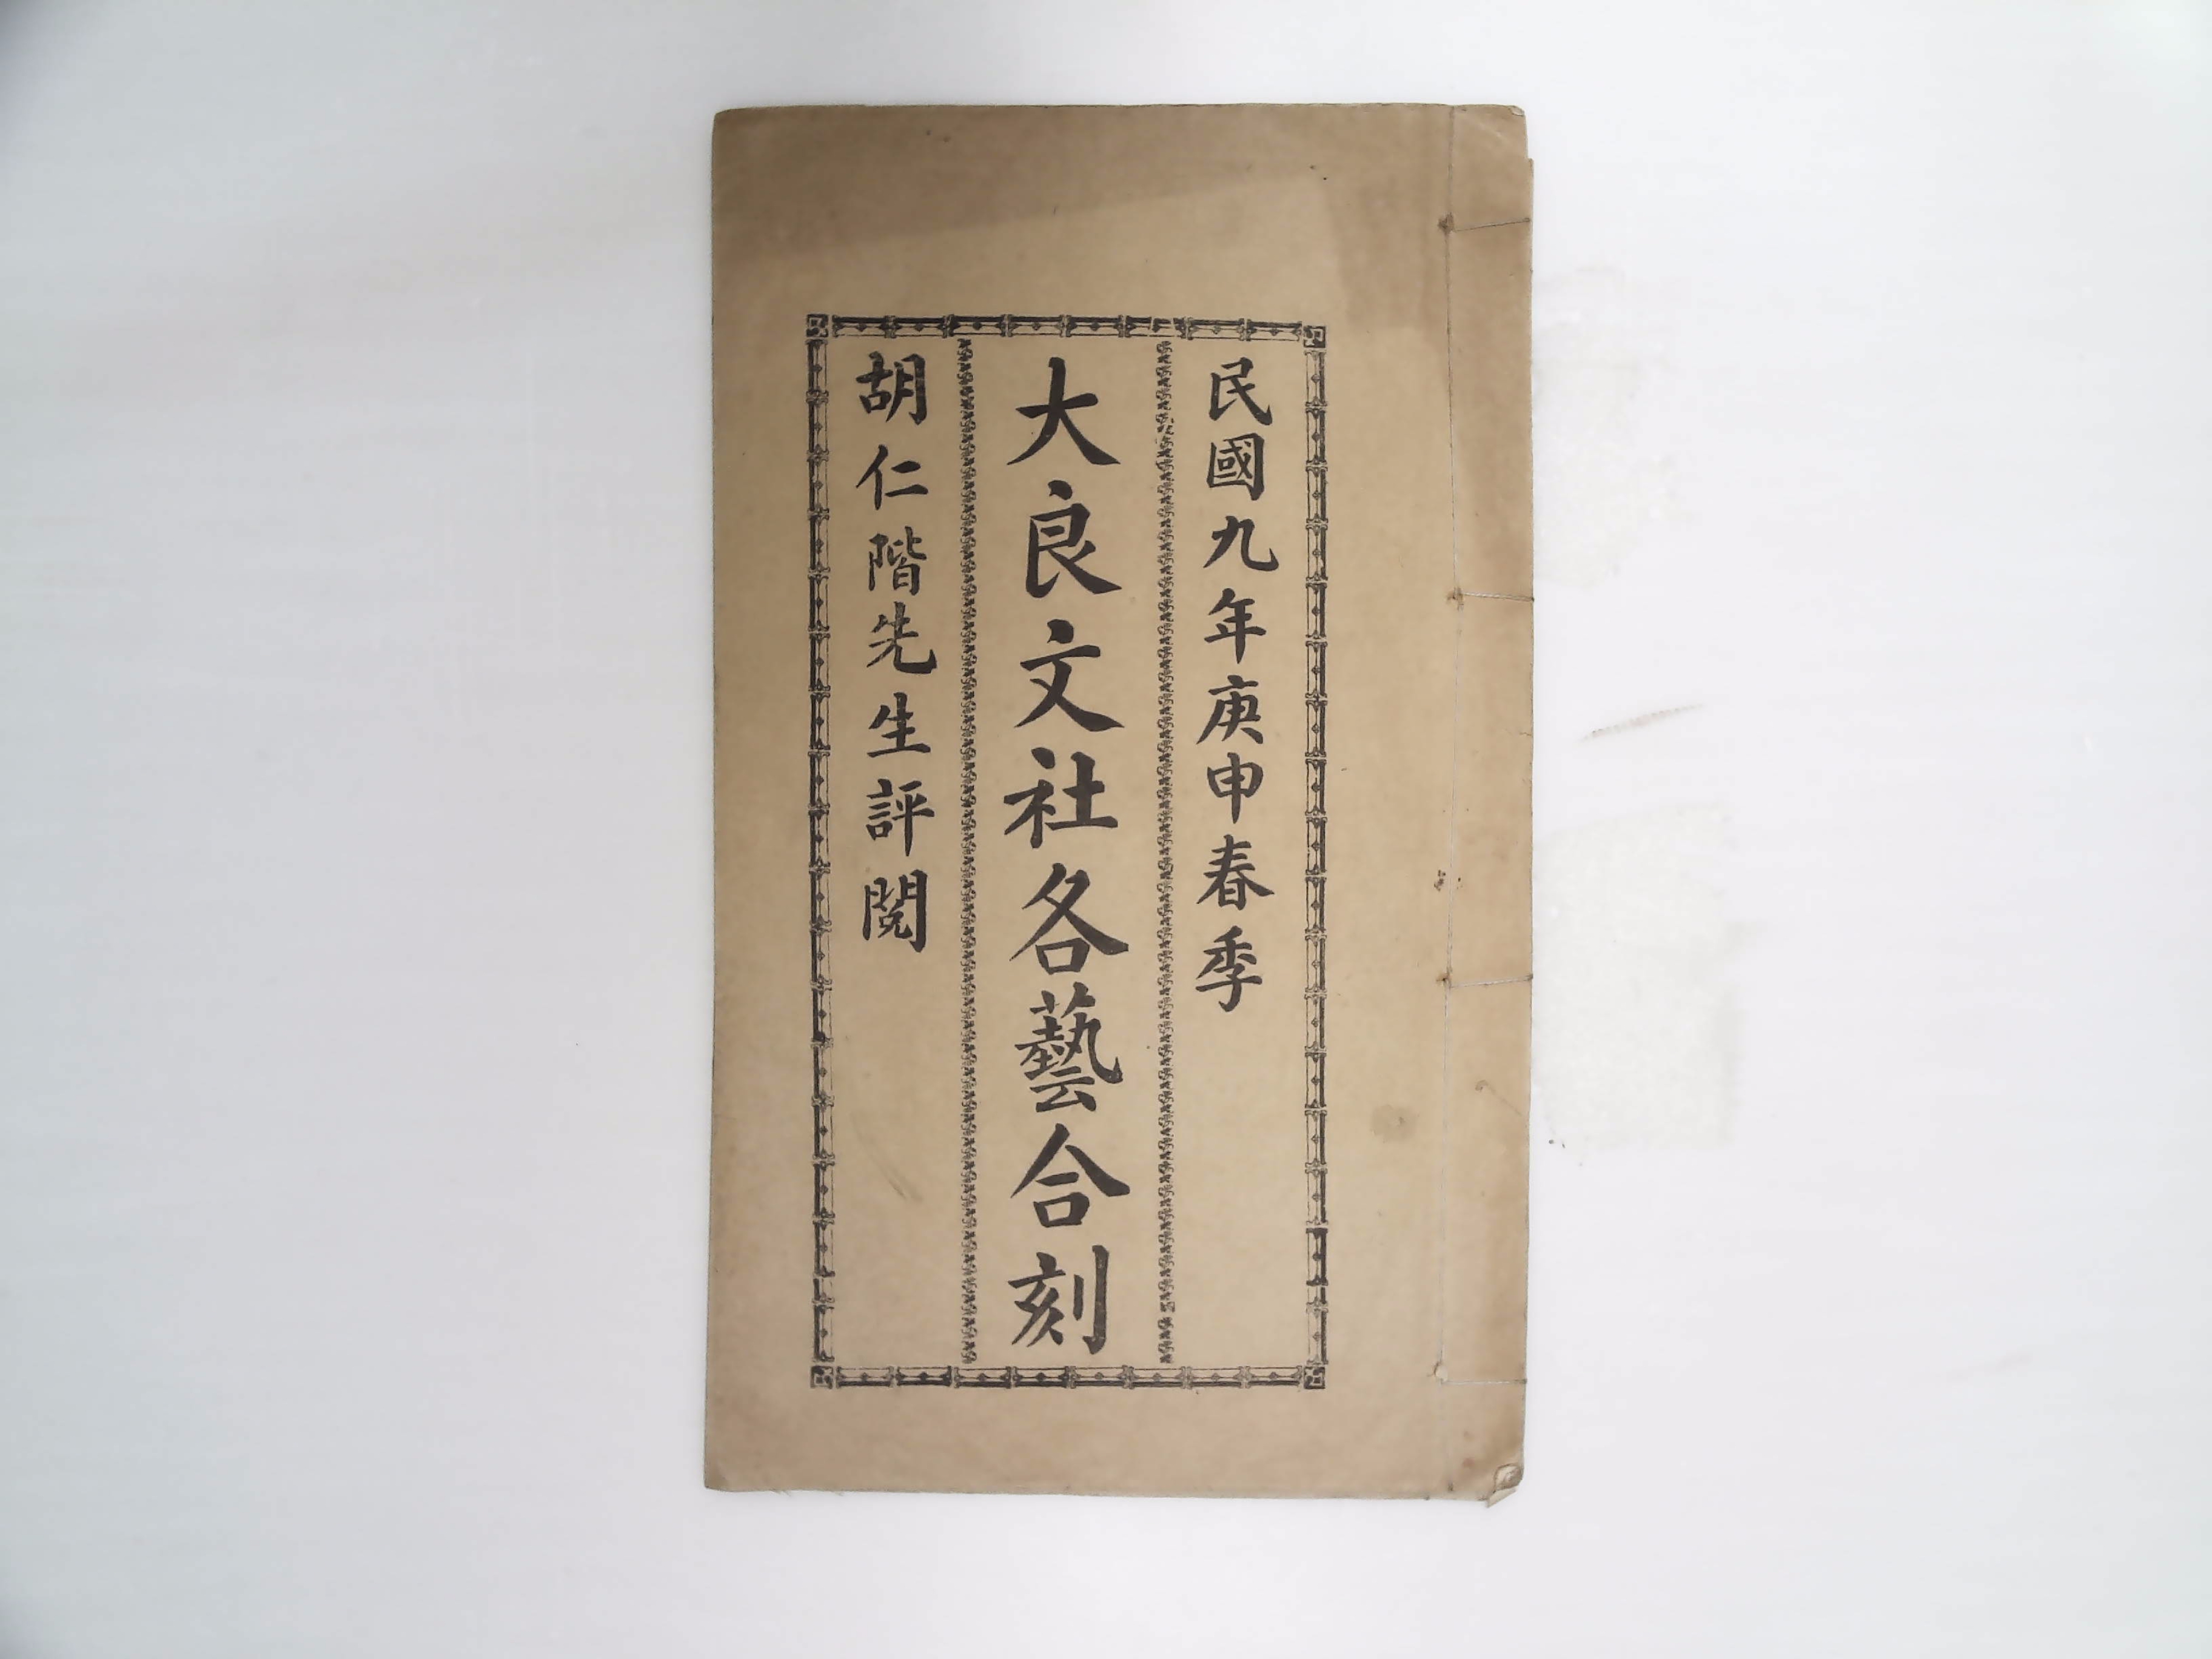 民國九年庚申春季
大良文社各藝合刻
胡仁階先生評閱